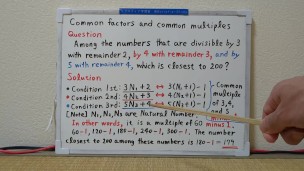 Common factors and common multiples
Question
Among the numbers that are divisible by 3
with remainder 2, by 4 with remainder 3, and by
5 with remainder 4, which is closest to 200?
Solution
• Condition 1st: 3N₁+2 ↔ 3(N₁+1)-1
• Condition 2nd: 4N₂+3 ↔ 4(N₂+1)-1
• Condition 3rd: 5N₃+4 ↔ 5(N₃+1)-1
Common
multiple
of 3, 4,
and 5
minus 1
[Note] N₁, N₂, N₃ are Natural Number.
In other words, it is a multiple of 60 minus 1.
60-1, 120-1, 180-1, 240-1, 300-1. The number
closest to 200 among these numbers is 180-1=179